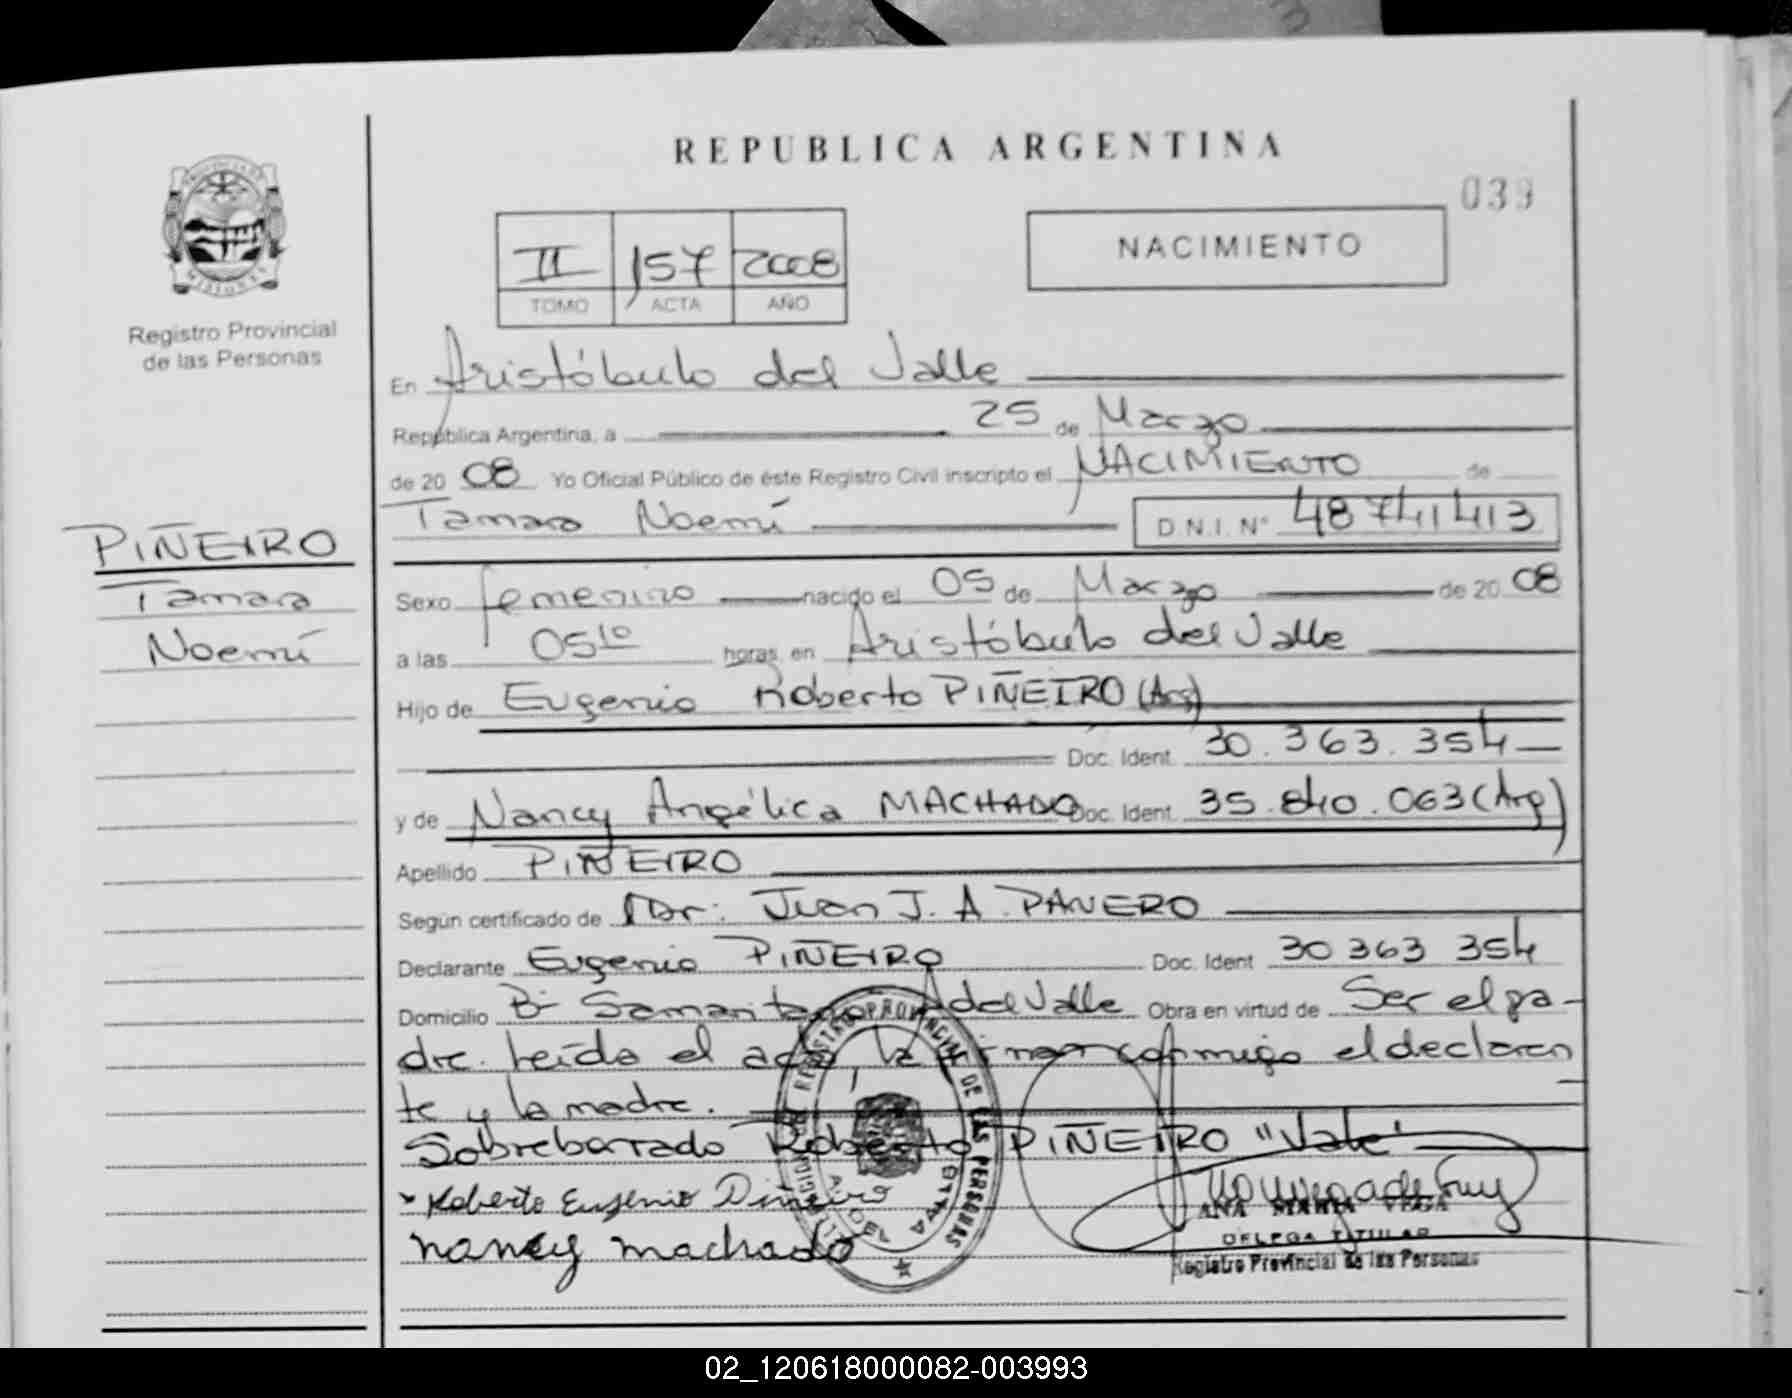 REPUBLICA ARGENTINA
039
NACIMIENTO
II 157 2008
TOMO ACTA AÑO
Registro Provincial
de las Personas
En Aristóbulo del Valle
República Argentina, a 25 de Marzo
de 20 08 Yo Oficial Público de éste Registro Civil inscripto el NACIMIENTO de
Tamara Noemí D.N.I. N° 48741413
PIÑEIRO
Tamara
Noemí
Sexo femenino nacido el 05 de Marzo de 20 08
a las 05 10 horas en Aristóbulo del Valle
Hijo de Eugenio Roberto PIÑEIRO (Arg)
Doc. Ident. 30.363.354
y de Nancy Angélica MACHADO Doc. Ident. 35.840.063 (Arg)
Apellido PIÑEIRO
Según certificado de Dr: Juan J. A. PANERO
Declarante Eugenio PIÑEIRO Doc. Ident 30 363 354
Domicilio B- Samaritano A del Valle Obra en virtud de Ser el pa-
dre. Leída el acta, la firman conmigo el declaran
te y la madre.
Sobrebarrado Roberto PIÑEIRO "Vale"
Roberto Eugenio Piñeiro
nancy machado
REGISTRO PROVINCIAL DE LAS PERSONAS
ANA MARIA VEGA
DELEGA TITULAR
Registro Provincial de las Personas
02_120618000082-003993